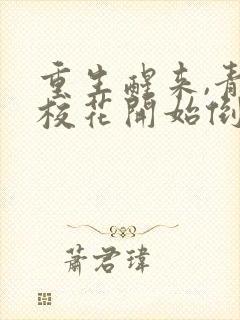 重生醒来,青
校花開始倒
蕭君瑋